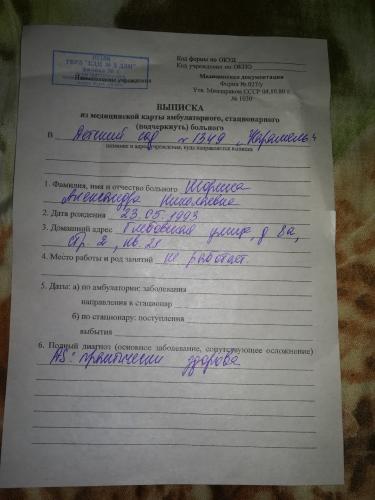 ГБУЗ "КДЦ № 2 ДЗМ"
Наименование учреждения
Код формы по ОКУД
Код учреждения по ОКПО
Медицинская документация
Форма № 027/у
Утв. Минздравом СССР 04.10.80 г.
№ 1030
ВЫПИСКА
из медицинской карты амбулаторного, стационарного
(подчеркнуть) больного
В Детский сад №1349 "Карамель"
название и адрес учреждения, куда направляется выписка
1. Фамилия, имя и отчество больного
Александра Николаевна
2. Дата рождения 23.05.1993
3. Домашний адрес Глебовская улица, д 8а,
стр. 2, кв. 21
4. Место работы и род занятий не работает
5. Даты: а) по амбулатории: заболевания
направления в стационар
б) по стационару: поступления
выбытия
6. Полный диагноз (основное заболевание, сопутствующее осложнение)
DS: практически здорова